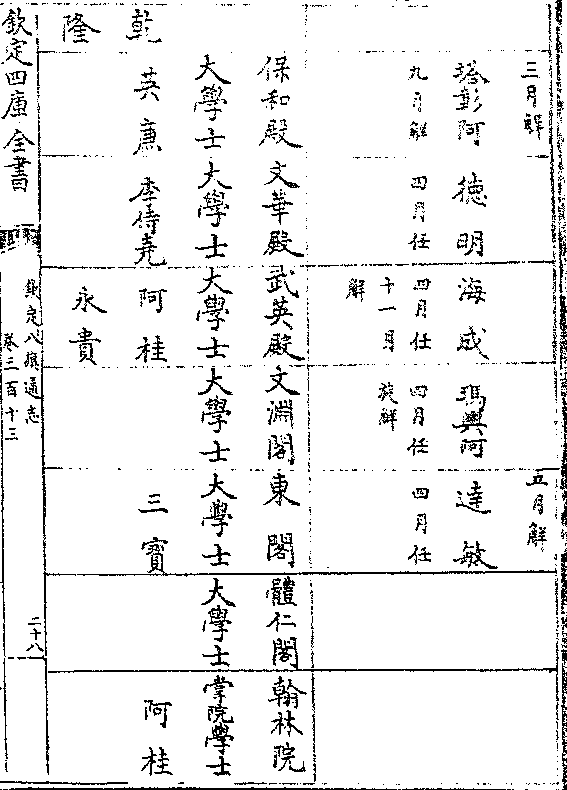 三月解
塔彰阿
九月解
德明
四月任
海成
四月任
十一月
解
瑪興阿
四月任
旋解
五月解
達敏
四月任
乾隆
保和殿
大學士
英廉
文華殿
大學士
李侍堯
武英殿
大學士
阿桂
永貴
文淵閣
大學士
東閣
大學士
三寶
體仁閣
大學士
翰林院
掌院學士
阿桂
欽定四庫全書
欽定八旗通志
卷三百十三
二十八